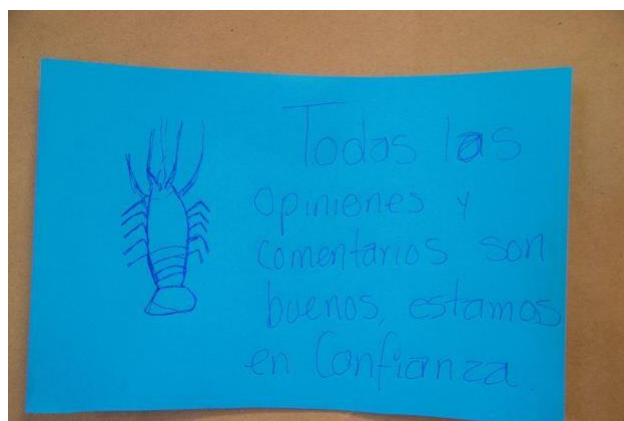 Todas las
opiniones y
comentarios son
buenos, estamos
en Confianza.